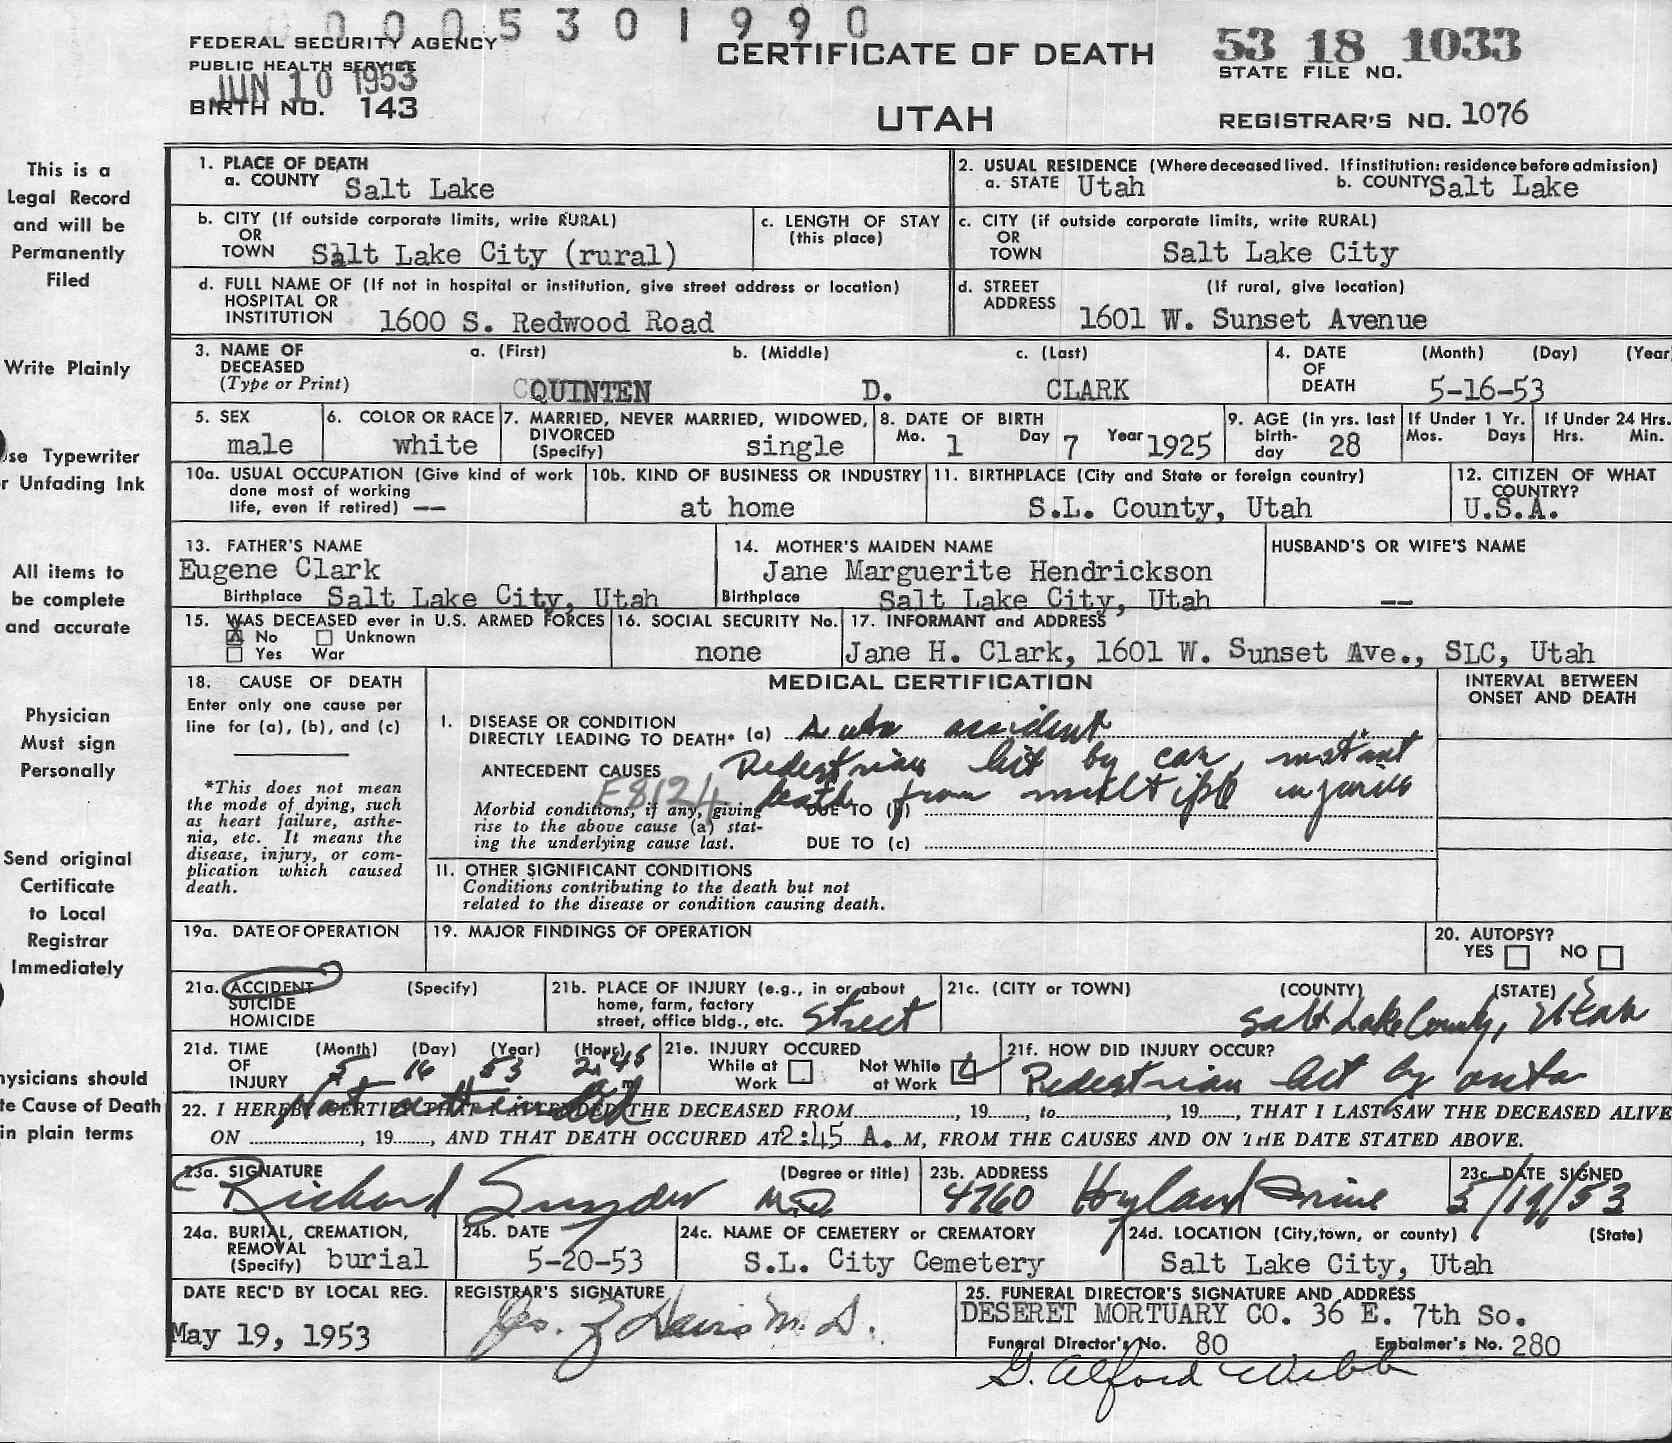 0 0 0 5 3 0 1 9 9 0
FEDERAL SECURITY AGENCY
PUBLIC HEALTH SERVICE
JUN 10 1953
BIRTH NO. 143
CERTIFICATE OF DEATH
UTAH
53 18 1033
STATE FILE NO.
REGISTRAR'S NO. 1076
This is a
Legal Record
and will be
Permanently
Filed
Write Plainly
se Typewriter
r Unfading Ink
All items to
be complete
and accurate
Physician
Must sign
Personally
Send original
Certificate
to Local
Registrar
Immediately
hysicians should
te Cause of Death
in plain terms
1. PLACE OF DEATH
a. COUNTY Salt Lake
2. USUAL RESIDENCE (Where deceased lived. If institution: residence before admission)
a. STATE Utah b. COUNTY Salt Lake
b. CITY (If outside corporate limits, write RURAL)
OR
TOWN Salt Lake City (rural)
c. LENGTH OF STAY
(this place)
c. CITY (if outside corporate limits, write RURAL)
OR
TOWN Salt Lake City
d. FULL NAME OF (If not in hospital or institution, give street address or location)
HOSPITAL OR
INSTITUTION 1600 S. Redwood Road
d. STREET (If rural, give location)
ADDRESS 1601 W. Sunset Avenue
3. NAME OF a. (First) b. (Middle) c. (Last)
DECEASED
(Type or Print) QUINTEN D. CLARK
4. DATE (Month) (Day) (Year
OF
DEATH 5-16-53
5. SEX
male
6. COLOR OR RACE
white
7. MARRIED, NEVER MARRIED, WIDOWED,
DIVORCED
(Specify) single
8. DATE OF BIRTH
Mo. 1 Day 7 Year 1925
9. AGE (in yrs. last
birth-
day 28
If Under 1 Yr.
Mos. Days
If Under 24 Hrs.
Hrs. Min.
10a. USUAL OCCUPATION (Give kind of work
done most of working
life, even if retired) --
10b. KIND OF BUSINESS OR INDUSTRY
at home
11. BIRTHPLACE (City and State or foreign country)
S.L. County, Utah
12. CITIZEN OF WHAT
COUNTRY?
U.S.A.
13. FATHER'S NAME
Eugene Clark
Birthplace Salt Lake City, Utah
14. MOTHER'S MAIDEN NAME
Jane Marguerite Hendrickson
Birthplace Salt Lake City, Utah
HUSBAND'S OR WIFE'S NAME
--
15. WAS DECEASED ever in U.S. ARMED FORCES
X No Unknown
Yes War
16. SOCIAL SECURITY No.
none
17. INFORMANT and ADDRESS
Jane H. Clark, 1601 W. Sunset Ave., SLC, Utah
18. CAUSE OF DEATH
Enter only one cause per
line for (a), (b), and (c)
*This does not mean
the mode of dying, such
as heart failure, asthe-
nia, etc. It means the
disease, injury, or com-
plication which caused
death.
MEDICAL CERTIFICATION
INTERVAL BETWEEN
ONSET AND DEATH
I. DISEASE OR CONDITION
DIRECTLY LEADING TO DEATH* (a) Auto accident
ANTECEDENT CAUSES Pedestrian hit by car, instant
E8124 death from multiple injuries
Morbid conditions, if any, giving DUE TO (b)
rise to the above cause (a) stat-
ing the underlying cause last. DUE TO (c)
II. OTHER SIGNIFICANT CONDITIONS
Conditions contributing to the death but not
related to the disease or condition causing death.
19a. DATE OF OPERATION
19. MAJOR FINDINGS OF OPERATION
20. AUTOPSY?
YES NO
21a. ACCIDENT (Specify)
SUICIDE
HOMICIDE
21b. PLACE OF INJURY (e.g., in or about
home, farm, factory
street, office bldg., etc. Street
21c. (CITY or TOWN) (COUNTY) (STATE)
Salt Lake County, Utah
21d. TIME (Month) (Day) (Year) (Hour)
OF
INJURY 5 16 53 2:45 am
21e. INJURY OCCURED
While at Not While
Work at Work
21f. HOW DID INJURY OCCUR?
Pedestrian hit by auto
Not attended
22. I HEREBY CERTIFY THAT I ATTENDED THE DECEASED FROM, 19, to, 19, THAT I LAST SAW THE DECEASED ALIVE
ON, 19, AND THAT DEATH OCCURED AT 2:45 A. M, FROM THE CAUSES AND ON THE DATE STATED ABOVE.
23a. SIGNATURE (Degree or title)
Richard Snyder M.D.
23b. ADDRESS
4760 Hoyland Drive
23c. DATE SIGNED
5/19/53
24a. BURIAL, CREMATION,
REMOVAL
(Specify) burial
24b. DATE
5-20-53
24c. NAME OF CEMETERY OR CREMATORY
S.L. City Cemetery
24d. LOCATION (City, town, or county) (State)
Salt Lake City, Utah
DATE REC'D BY LOCAL REG.
May 19, 1953
REGISTRAR'S SIGNATURE
Davis M.D.
25. FUNERAL DIRECTOR'S SIGNATURE AND ADDRESS
DESERET MORTUARY CO. 36 E. 7th So.
Funeral Director's No. 80 Embalmer's No. 280
G. Alford Webb